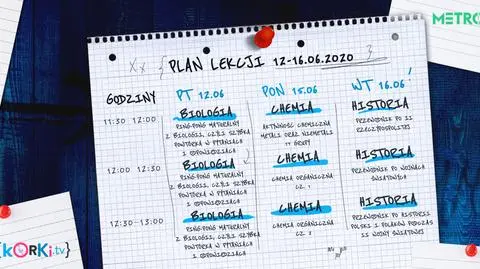 METRO
PLAN LEKCJI 12-16.06.2020
GODZINY
PT 12.06
PON 15.06
WT 16.06
11:30 12:00
BIOLOGIA
PING-PONG MATURALNY
Z BIOLOGII, CZYLI SZYBKA
POWTÓRKA W PYTANIACH
I ODPOWIEDZIACH
CHEMIA
AKTYWNOŚĆ CHEMICZNA
METALI ORAZ NIEMETALI
17 GRUPY
HISTORIA
PRZEWODNIK PO II
RZECZPOSPOLITEJ
12:00 12:30
BIOLOGIA
PING-PONG MATURALNY
Z BIOLOGII, CZYLI SZYBKA
POWTÓRKA W PYTANIACH
I ODPOWIEDZIACH
CHEMIA
CHEMIA ORGANICZNA
CZ. 1
HISTORIA
PRZEWODNIK PO WOJNACH
ŚWIATOWYCH
12:30-13:00
BIOLOGIA
PING-PONG MATURALNY
Z BIOLOGII, CZYLI SZYBKA
POWTÓRKA W PYTANIACH
I ODPOWIEDZIACH
CHEMIA
CHEMIA ORGANICZNA
CZ. 2
HISTORIA
PRZEWODNIK PO HISTORII
POLSKI I POLAKÓW PODCZAS
II WOJNY ŚWIATOWEJ
{KORKI.tv}